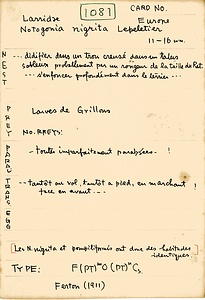 1081
CARD NO.
Larridae
Europe
Notogonia nigrita Lepeletier
11-16 mm.
NEST
... édifier dans un trou creusé dans un talus
sableux probablement par un rongeur de la taille du Rat.
... s'enfoncer profondément dans le terrier ...
PREY
Larves de Grillons
NO. PREYS:
PARAL
- toutes imparfaitement paralysées. !
TRANS
- tantôt au vol, tantôt à pied, en marchant !
face en avant ...
EGG
[Les N. nigrita et pompiliformis ont donc des habitudes
identiques.
TYPE:
Ferton (1911)